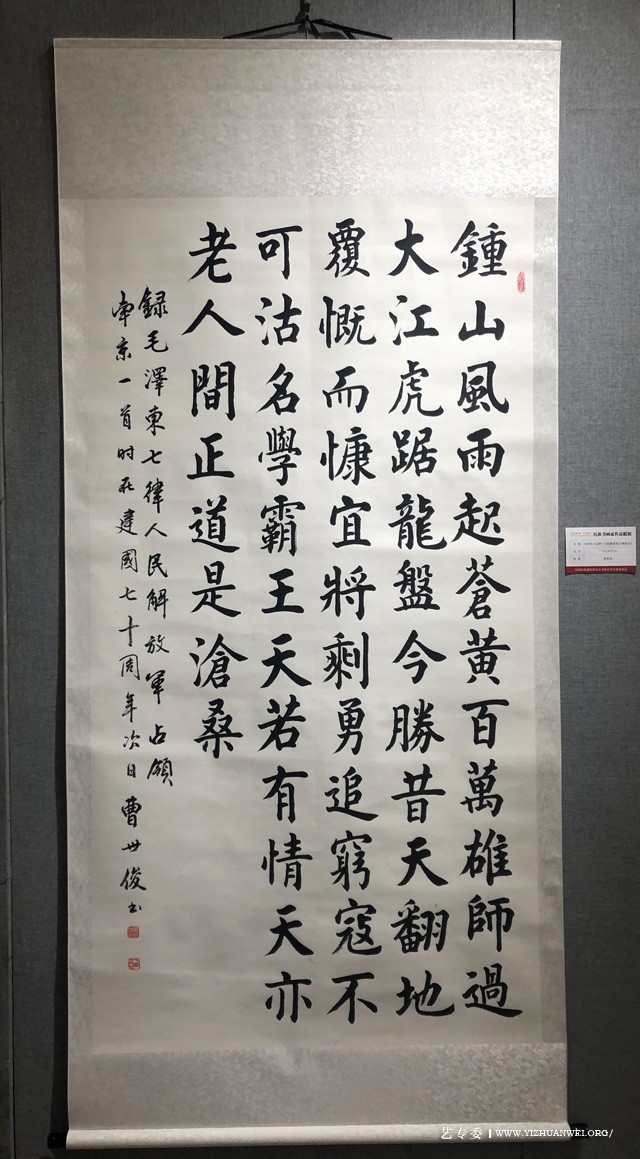 鍾山風雨起蒼黄百萬雄師過
大江虎踞龍盤今勝昔天翻地
覆慨而慷宜將剩勇追窮寇不
可沽名學霸王天若有情天亦
老人間正道是滄桑
録毛澤東七律人民解放軍占領
南京一首时在建國七十周年次日曹世俊书
艺专委 | WWW.YIZHUANWEI.ORG/